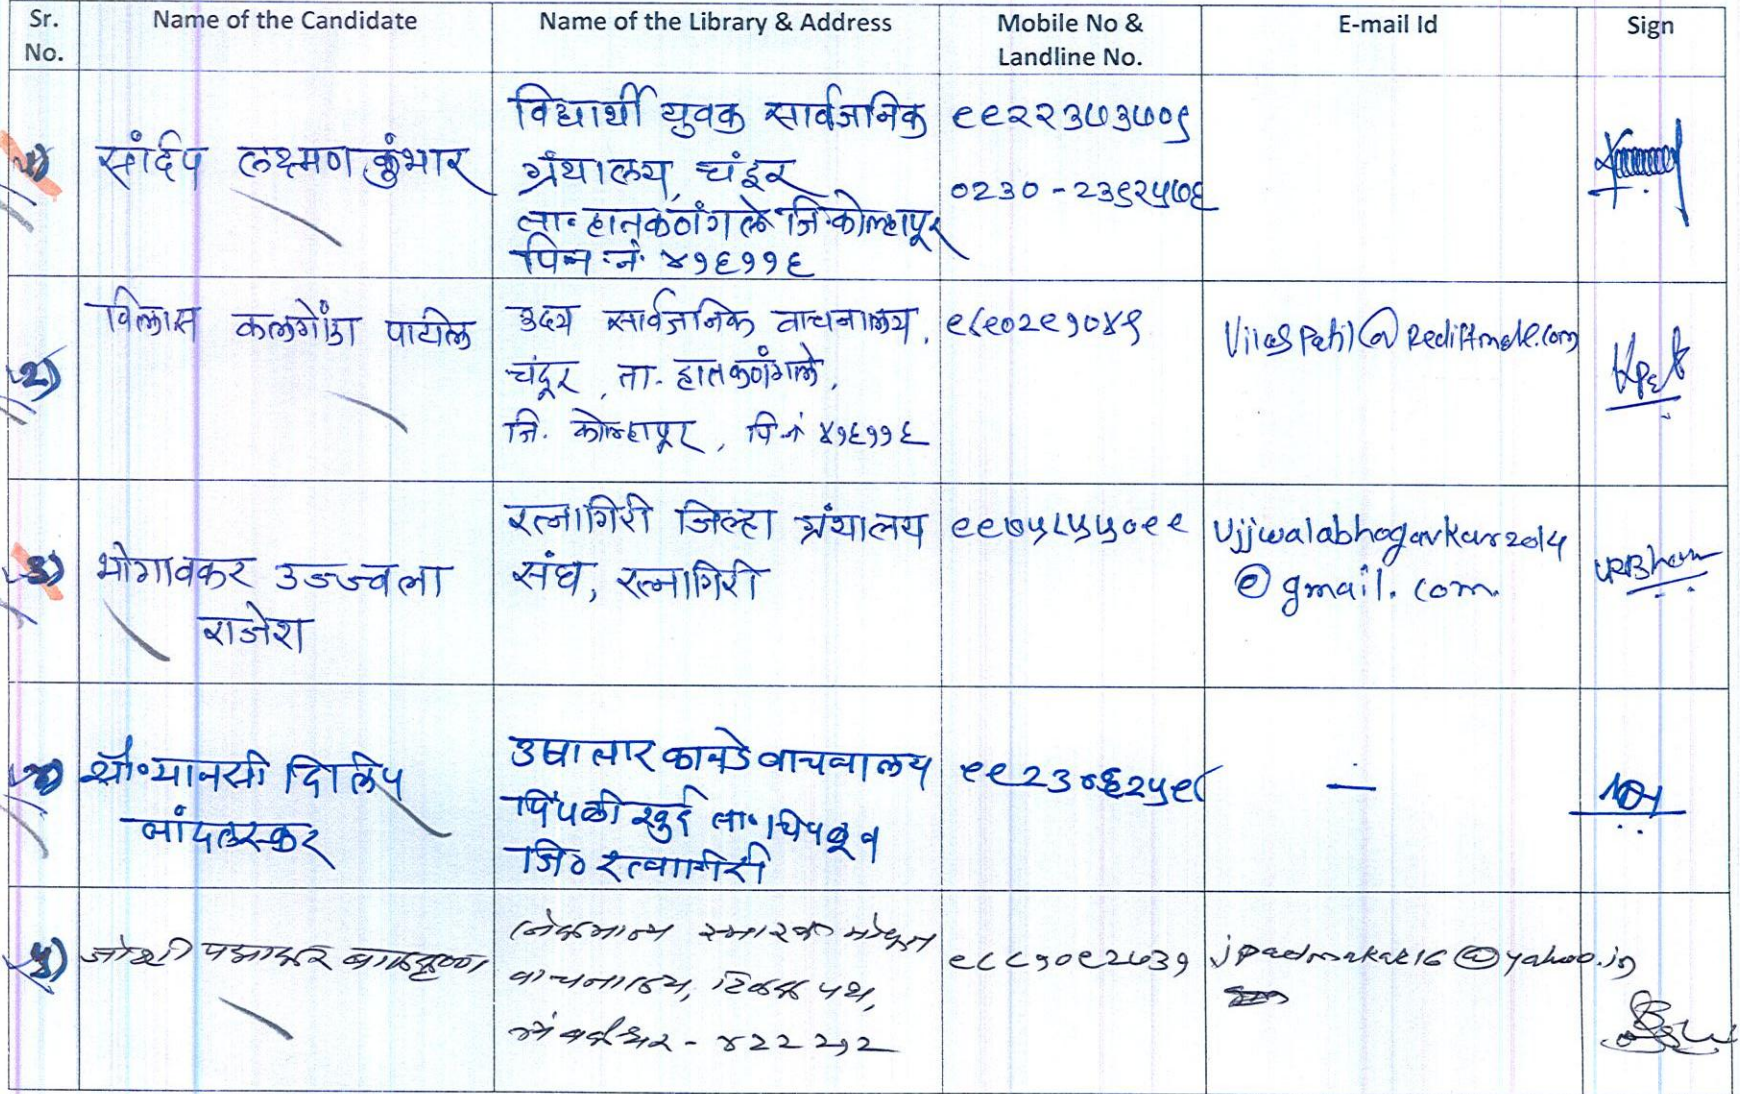 Sr. No. Name of the Candidate Name of the Library & Address Mobile No & Landline No. E-mail Id Sign
१) संदिप लक्ष्मण कुंभार
विद्यार्थी युवक सार्वजनिक
ग्रंथालय, चंदूर
ता. हातकणंगले जि. कोल्हापूर
पिन नं. ४१६११६
९९२२३७३७०९
०२३०-२३९२५७६
२) विलास कलगोंडा पाटील
उदय सार्वजनिक वाचनालय,
चंदूर, ता. हातकणंगले,
जि. कोल्हापूर, पि नं ४१६११६
९८९०२९१०४९
Vilaspatil@rediffmale.com
३) भोगावकर उज्ज्वला
राजेश
रत्नागिरी जिल्हा ग्रंथालय
संघ, रत्नागिरी
९९७५८५५०९९
Ujjwalabhogavkar2014
@gmail.com.
४) सौ. मानसी दिलिप
नांदलस्कर
वाचनालय
पिंपळी खुर्द ता. चिपळून
जि० रत्नागिरी
९९२३०६२५९८
—
५) जोशी पद्माकर बाळकृष्ण
लोकमान्य स्मारक मोफत
वाचनालय, टिळक पथ,
त्र्यंबकेश्वर - ४२२२१२
९८८१०९२७३१
jpadmakar16@yahoo.in